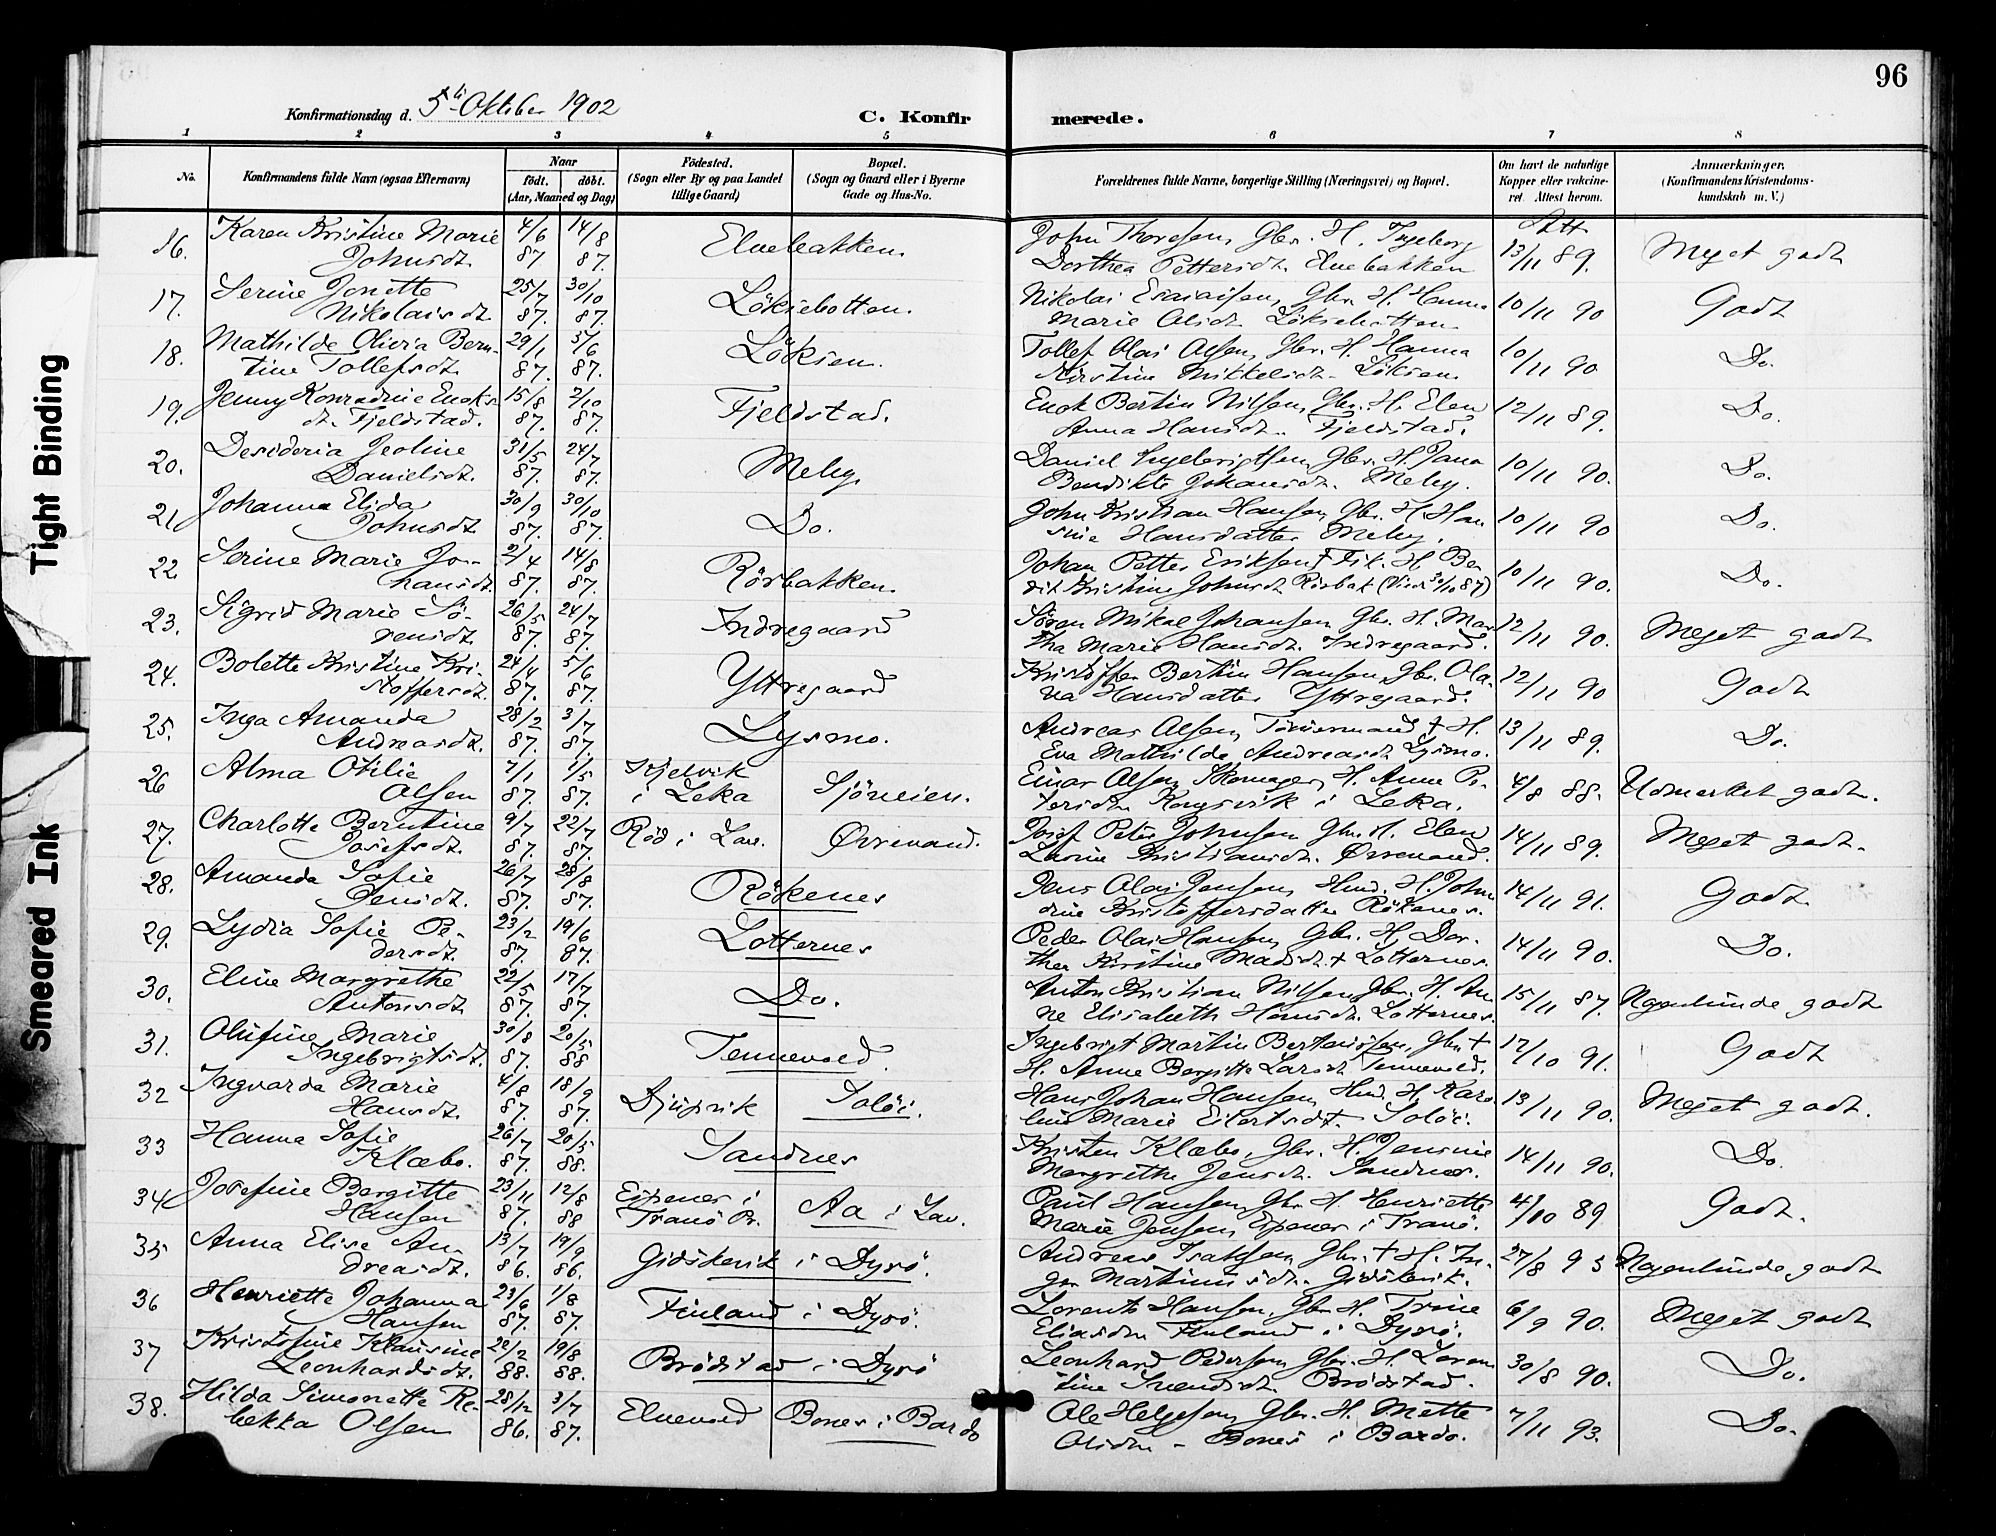 96
Konfirmationsdag d. 5te Oktober 1902
C. Konfirmerede.
1 2 3 4 5 6 7 8
No.
Konfirmandens fulde Navn (ogsaa Efternavn)
Naar
født. døbt.
(Aar, Maaned og Dag)
Födested.
(Sogn eller By og paa Landet
tillige Gaard)
Bopæl.
(Sogn og Gaard eller i Byerne
Gade og Hus-No.
Forældrenes fulde Navne, borgerlige Stilling (Næringsvei) og Bopæl.
Om havt de naturlige
Kopper eller vakcine-
ret. Attest herom.
Anmærkninger.
(Konfirmandens Kristendoms-
kundskab m. V.)
Att
16. Karen Kristine Marie 4/6 14/8 Elvebakken. John Thoresen, Gbr. H. Ingeborg 13/11 89. Meget godt
Johnsdt. 87 87. Dorthea Pettersdt. Elvebakken
17. Serine Jonette 25/7 30/10 Löksebotten. Nikolai Esaiassen, Gbr. H. Hanna 10/11 90 Godt
Nikolaisdt. 87. 87. Marie Olsdt. Löksebotten
18. Mathilde Olivia Bern- 29/1 5/6 Löksen. Tollef Olai Olsen, Gbr. H. Hanna 10/11 90 Do.
tine Tollefsdt. 87. 87. Kirstine Mikkelsdt. Löksen.
19. Jenny Konradine Enoks- 15/8 2/10 Fjeldstad. Enok Bertin Nilsen, Gbr. H. Elen 12/11 89. Do.
dt. Fjeldstad. 87. 87. Anna Hansdt. Fjeldstad.
20. Desideria Jeoline 31/5 24/7 Meby. Daniel Ingebrigtsen, Gbr. H. Jana 10/11 90. Do.
Danielsdt. 87. 87. Bendikte Johansdt. Meby.
21 Johanna Elida 30/9 30/10 Do. John Kristian Hansen, Gbr. H. Han 10/11 90 Do.
Johnsdt. 87. 87. sine Hansdatter Meby.
22 Serine Marie Jo- 2/4 14/8 Rörbakken. Johan Petter Eriksen † Fisk. H. Ben 10/11 90. Do.
hansdt. 87. 87. dit Kristine Johnsdt Rörbak (Viede 30/10 87)
23. Sigrid Marie Sö- 26/5 24/7 Indregaard Sören Mikal Johansen, Gbr. H. Mar 12/11 90. Meget godt
rensdt. 87. 87. tha Marie Hansdt. Indregaard.
24. Bolette Kristine Kri- 24/4 5/6 Yttregaard Kristoffer Bertin Hansen, Gbr. Ola- 12/11 90 Godt
stoffersdt. 87. 87. va Hansdatter Yttregaard.
25. Inga Amanda 28/2 3/7 Lysmo. Andreas Olsen, Tömmermand, † H. 13/11 89. Do.
Andreasdt. 87. 87. Eva Mathilde Andreasdt Lysmo.
26 Alma Otilie 7/1 1/5 Kjelvik Sjöveien. Einar Olsen, Skomager, H. Anne Pe- 4/8 88. Udmerket godt.
Olsen 87. 87. i Leka tersdt. Kongsvik i Leka.
27. Charlotte Berntine 9/7 22/7 Röd i Lav. Ørrevand. Josef Peter Johnsen, Gbr. H. Elen 14/11 89. Meget godt.
Josefsdt. 87. 87. Larine Kristiansdt. Ørrevand.
28. Amanda Sofie 26/7 28/8 Rökenes Jens Olai Jensen, Hmd. H. John 14/11 91. Godt
Jensdt. 87. 87. dine Kristoffersdatter Rökenes.
29. Lydia Sofie Pe- 23/2 19/6 Lotternes Peder Olai Hansen, Gbr. H. Dor- 14/11 90. Do.
dersdt. 87. 87. thea Kristine Madsdt. † Lotternes.
30. Eline Margrethe 22/5 17/7 Do. Anton Kristian Nilsen, Gbr. H. An 15/11 87. Nogenlunde godt
Antonsdt 87. 87. ne Elisabeth Hansdt. Lotternes.
31. Olufine Marie 30/8 20/5 Tennevold. Ingebrigt Martin Bertenssen, Gbr. † 17/10 91. Godt
Ingebrigtsdt. 87. 88 H. Anne Bergitte Larsdt. Tennevold.
32 Ingvarda Marie 4/8 18/9 Djupvik Solöi. Hans Johan Hansen, Hmd. H. Karo 13/11 90. Meget godt.
Hansdt. 87. 87. line Marie Eilertsdt. Solöi.
33 Hanna Sofie 26/7 20/5 Sandnes Kristen Klæbo, Gbr. H. Jensine 14/11 90. Do.
Klæbo. 87. 88. Margrethe Jensdt. Sandnes.
34 Josefine Bergitte 23/11 12/8 Espenes i Aa i Lav. Paul Hansen, Gbr. H. Henriette 4/10 89 Godt.
Hansen 87. 88 Tranö Pr. Marie Jensen, Espenes i Tranö.
35 Anna Elise An- 13/7 19/9 Gisskevik i Dyrö. Andreas Isaksen, Gbr. † H. In- 27/8 93 Nogenlunde godt
dreasdt. 86. 86. ger Martinusdt. Gisskevik.
36 Henriette Johanna 23/6 1/8 Finland i Dyrö. Lorents Hansen, Gbr. H. Trine 6/9 90. Meget godt
Hansen 87. 87. Eliasdtr. Finland i Dyrö.
37 Kristofine Klausine 22/2 19/8 Brödstad i Dyrö Leonhard Pedersen, Gbr. H. Loren 30/8 90. Do.
Leonhardsdt. 88. 88. tine Svendsdt. Brödstad.
38. Hilda Simonette Re- 28/12 3/7 Elvevold Bones i Bardo Ole Helgesen, Gbr. H. Mette 7/11 93. Do.
bekka Olsen 86. 87. Olsdtr. - Bones i Bardo.
Tight Binding
Smeared Ink